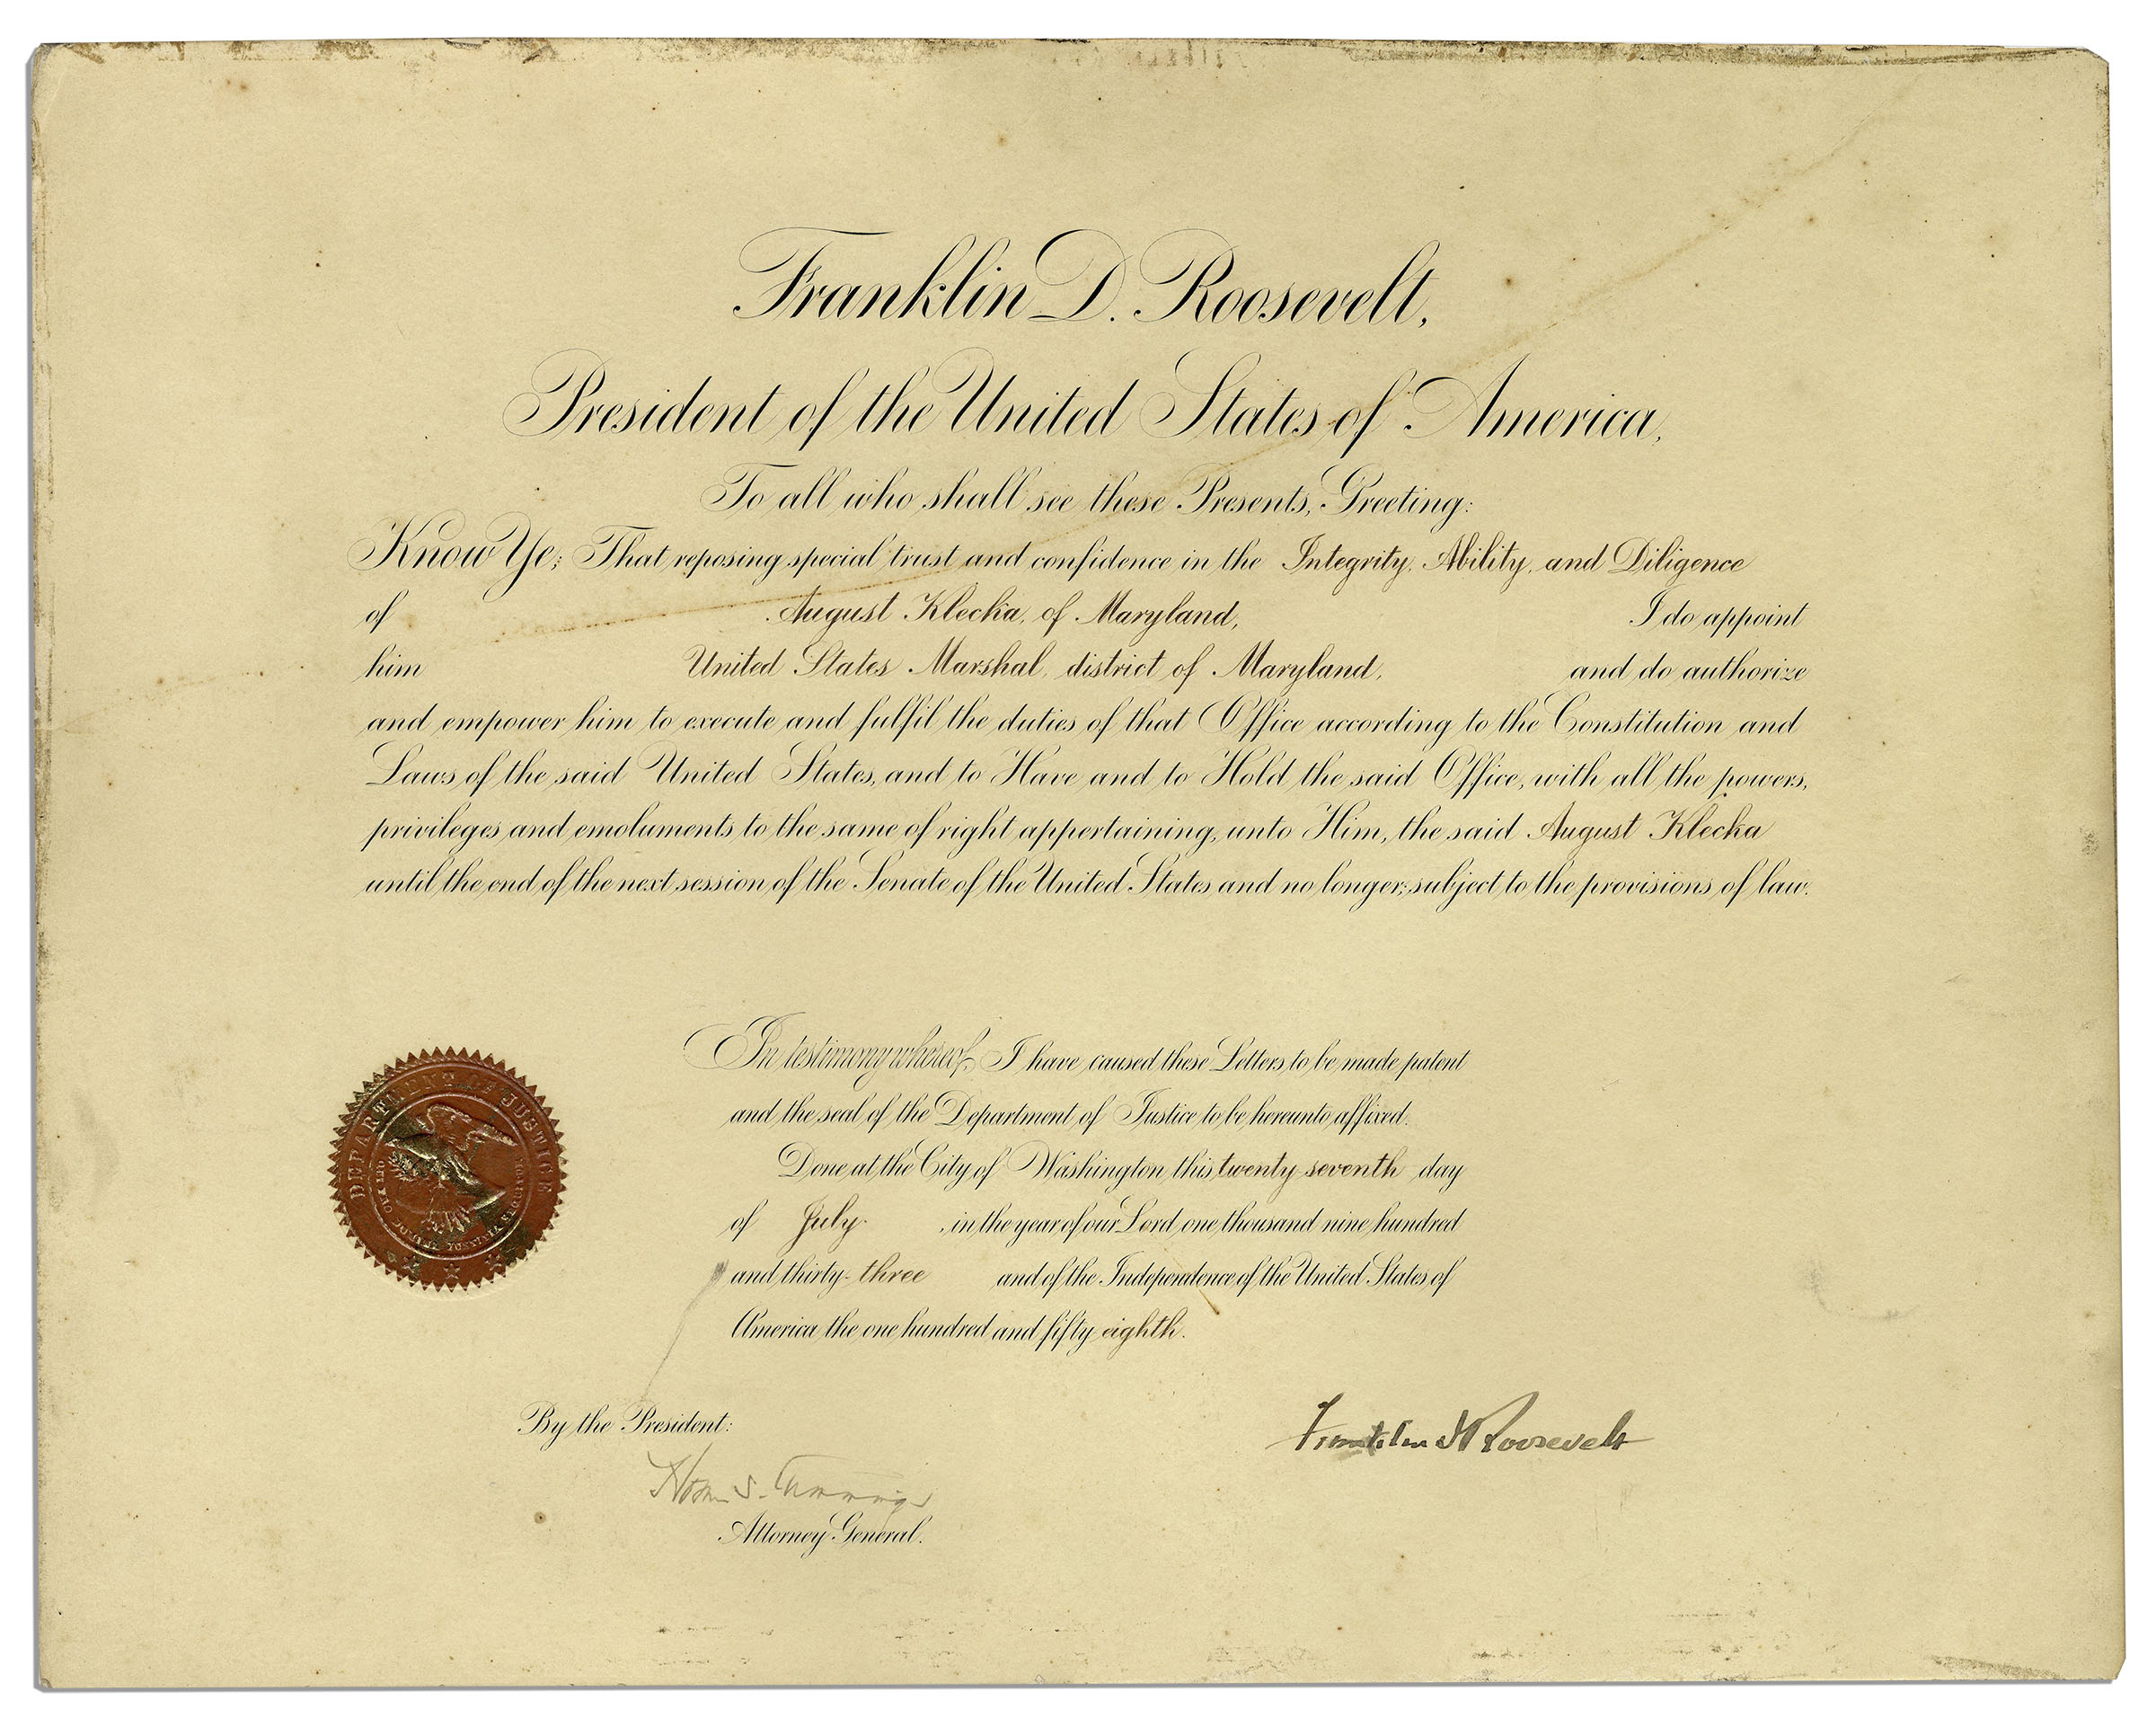 Franklin D. Roosevelt,
President of the United States of America,
To all who shall see these Presents, Greeting:
Know Ye; That reposing special trust and confidence in the Integrity, Ability, and Diligence
of August Klecka, of Maryland, I do appoint
him United States Marshal, district of Maryland, and do authorize
and empower him to execute and fulfil the duties of that Office according to the Constitution and
Laws of the said United States, and to Have and to Hold the said Office, with all the powers,
privileges and emoluments to the same of right appertaining, unto Him, the said August Klecka
until the end of the next session of the Senate of the United States and no longer; subject to the provisions of law.
In testimony whereof, I have caused these Letters to be made patent
and the seal of the Department of Justice to be hereunto affixed.
Done at the City of Washington this twenty seventh day
of July, in the year of our Lord one thousand nine hundred
and thirty-three and of the Independence of the United States of
America the one hundred and fifty eighth.
DEPARTMENT OF JUSTICE
By the President:
Franklin D Roosevelt
Homer S. Cummings
Attorney General.